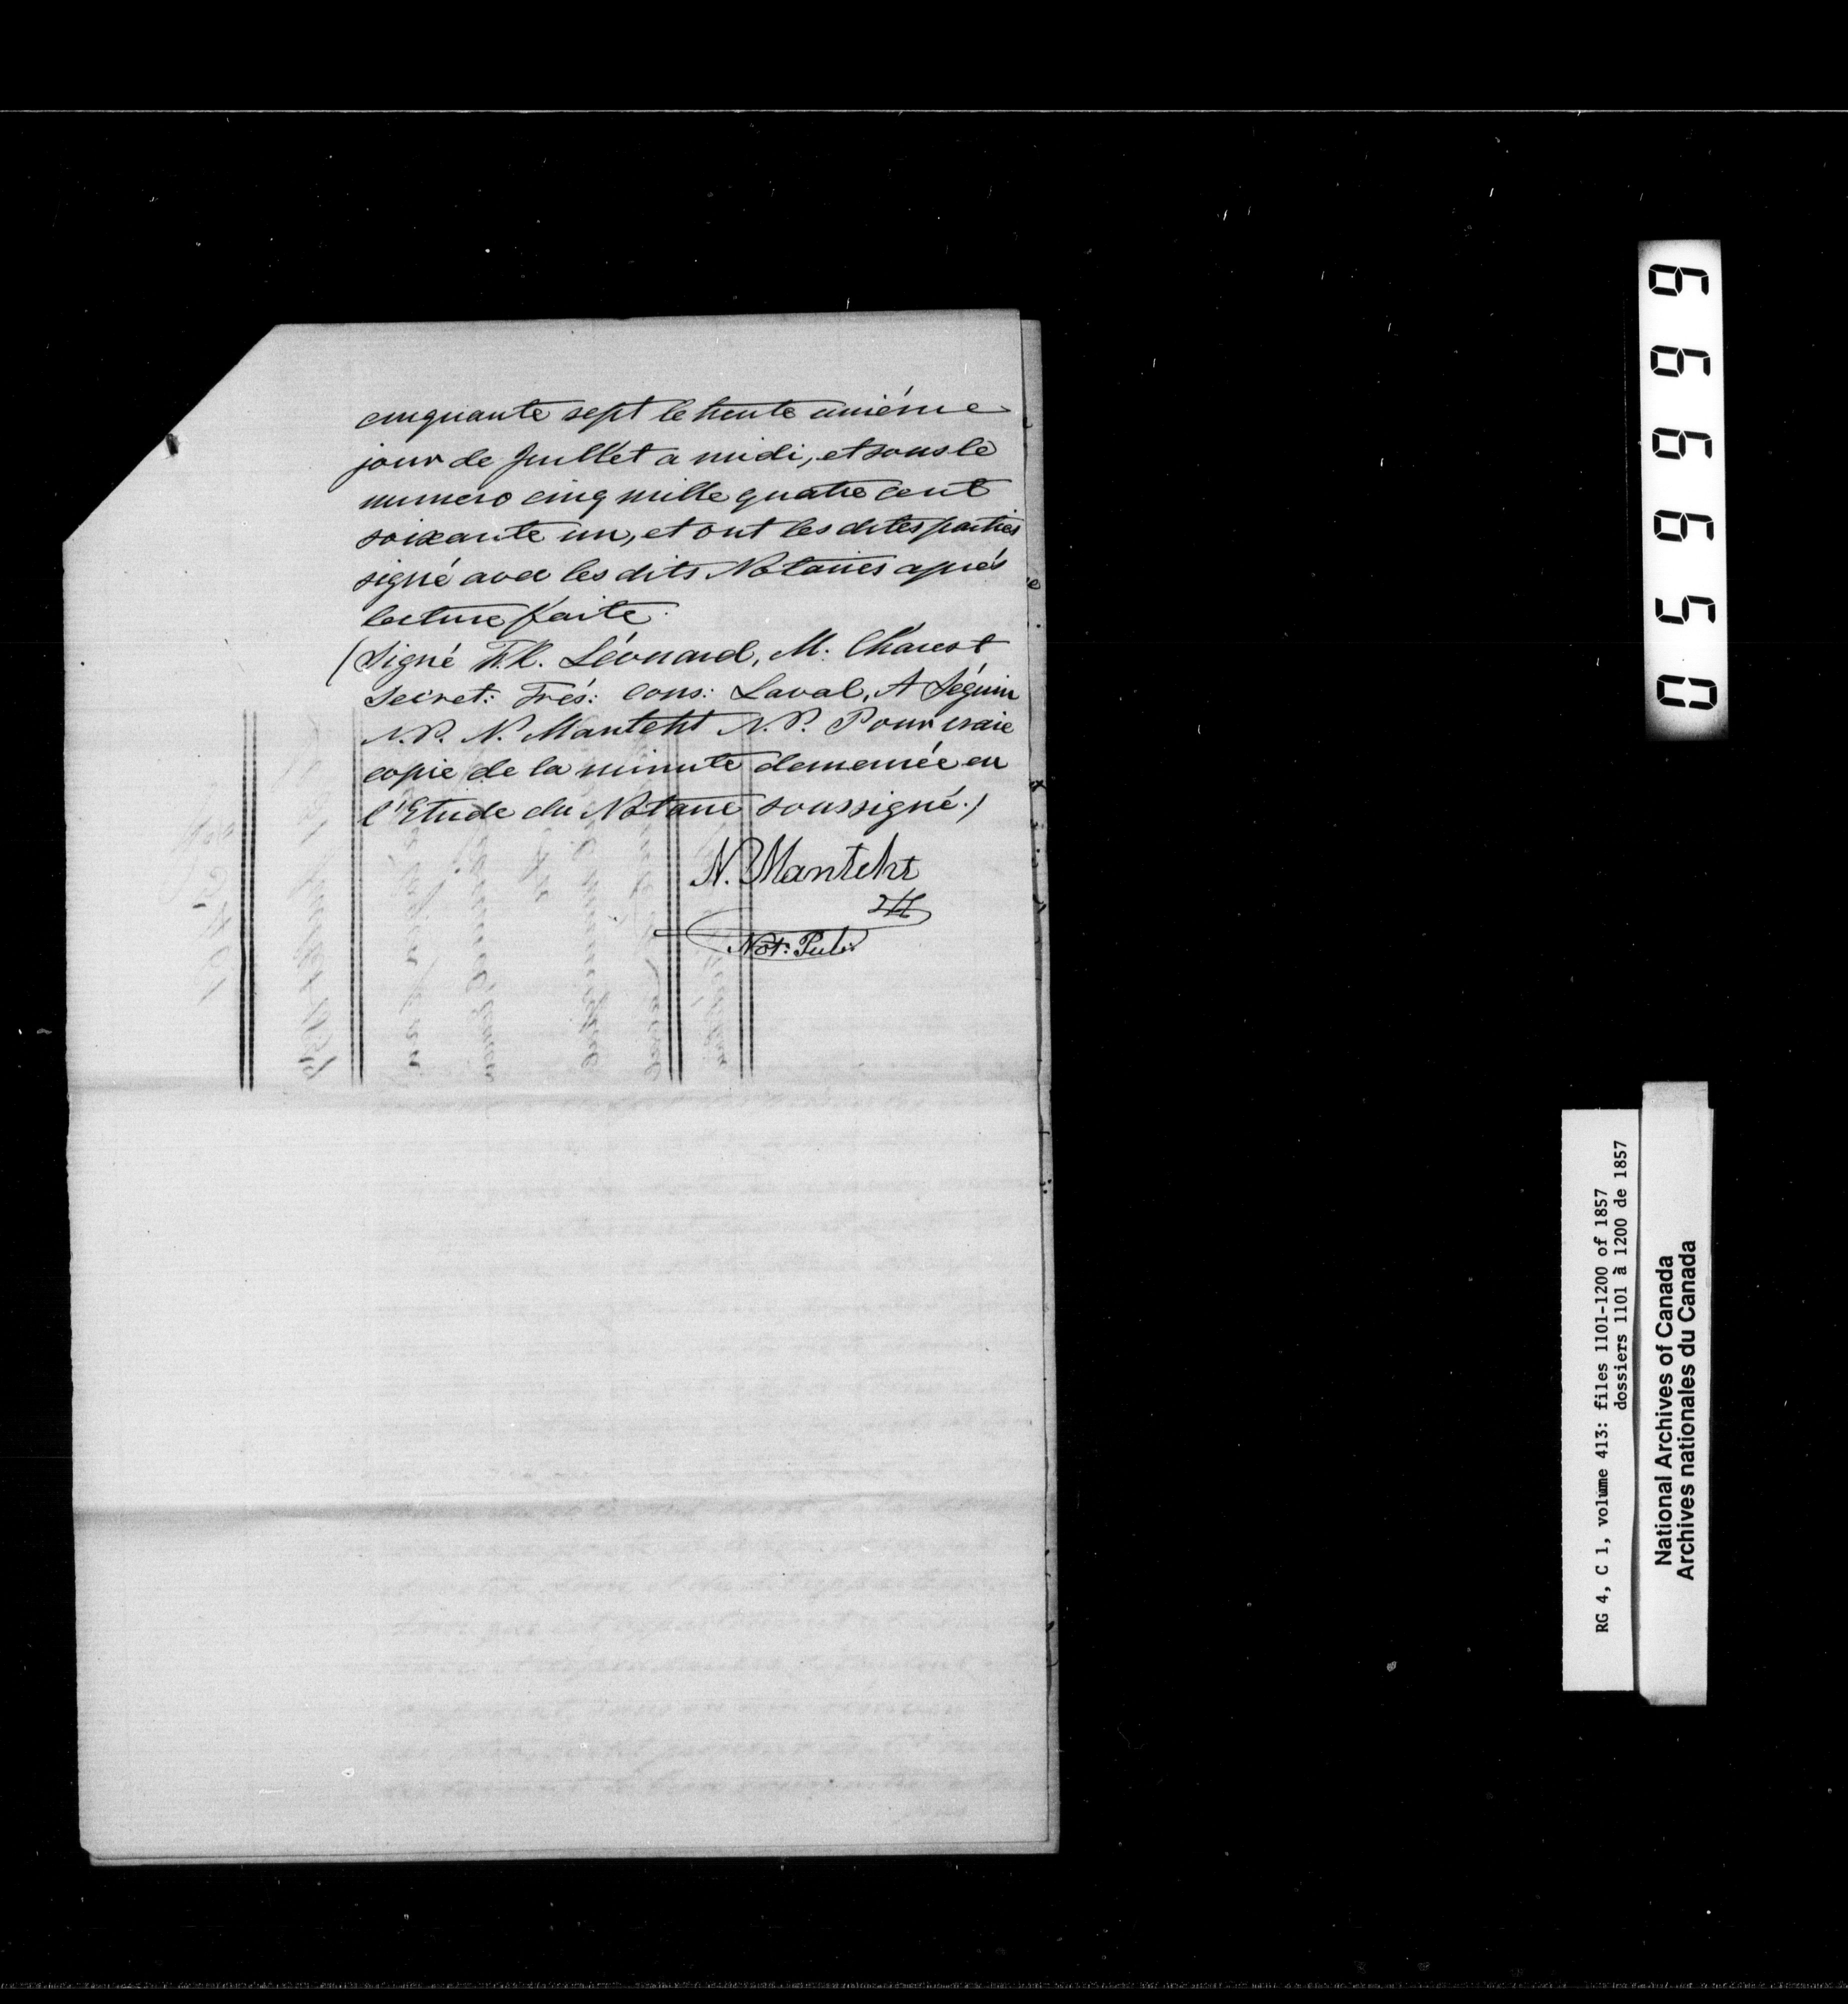 cinquante sept le trente unième
jour de Juillet a midi, et sous le
numero cinq mille quatre cent
soixante un, et ont les dites parties
signé avec les dits Notaires après
lecture faite.
(Signé F.X. Léonard, M. Charest
Secret: Trés: Cons: Laval, A Séguin
N.P. N. Manteht N.P. Pour vraie
copie de la minute demeurée en
l'Etude du Notaire soussigné./
N. Manteht
Not: Pub:
056666
RG 4, C 1, volume 413: files 1101-1200 of 1857
dossiers 1101 à 1200 de 1857
National Archives of Canada
Archives nationales du Canada